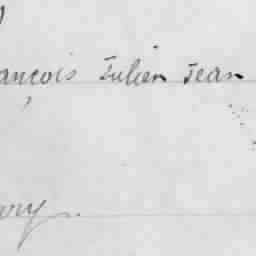 ançois Julien Jean